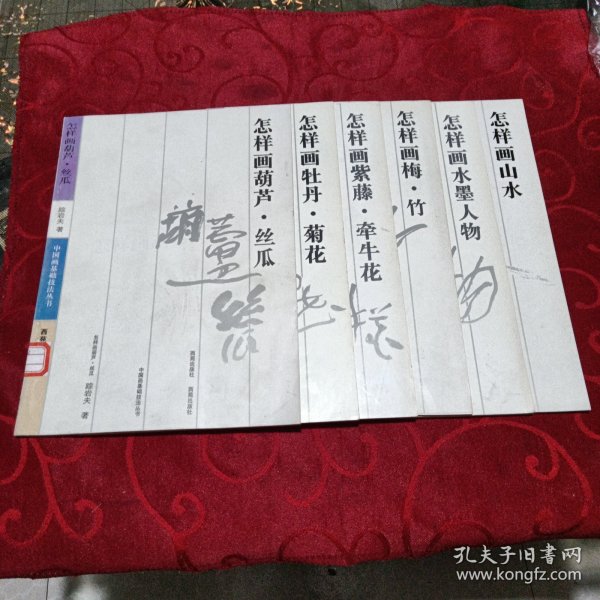 怎样画葫芦·丝瓜
踪岩夫 著
中国画基础技法丛书
西苑
怎样画葫芦·丝瓜
踪岩夫 著
中国画基础技法丛书
西苑出版社
怎样画葫芦·丝瓜
怎样画牡丹·菊花
怎样画紫藤·牵牛花
怎样画梅·竹
怎样画水墨人物
怎样画山水
孔夫子旧书网
www.kongfz.com